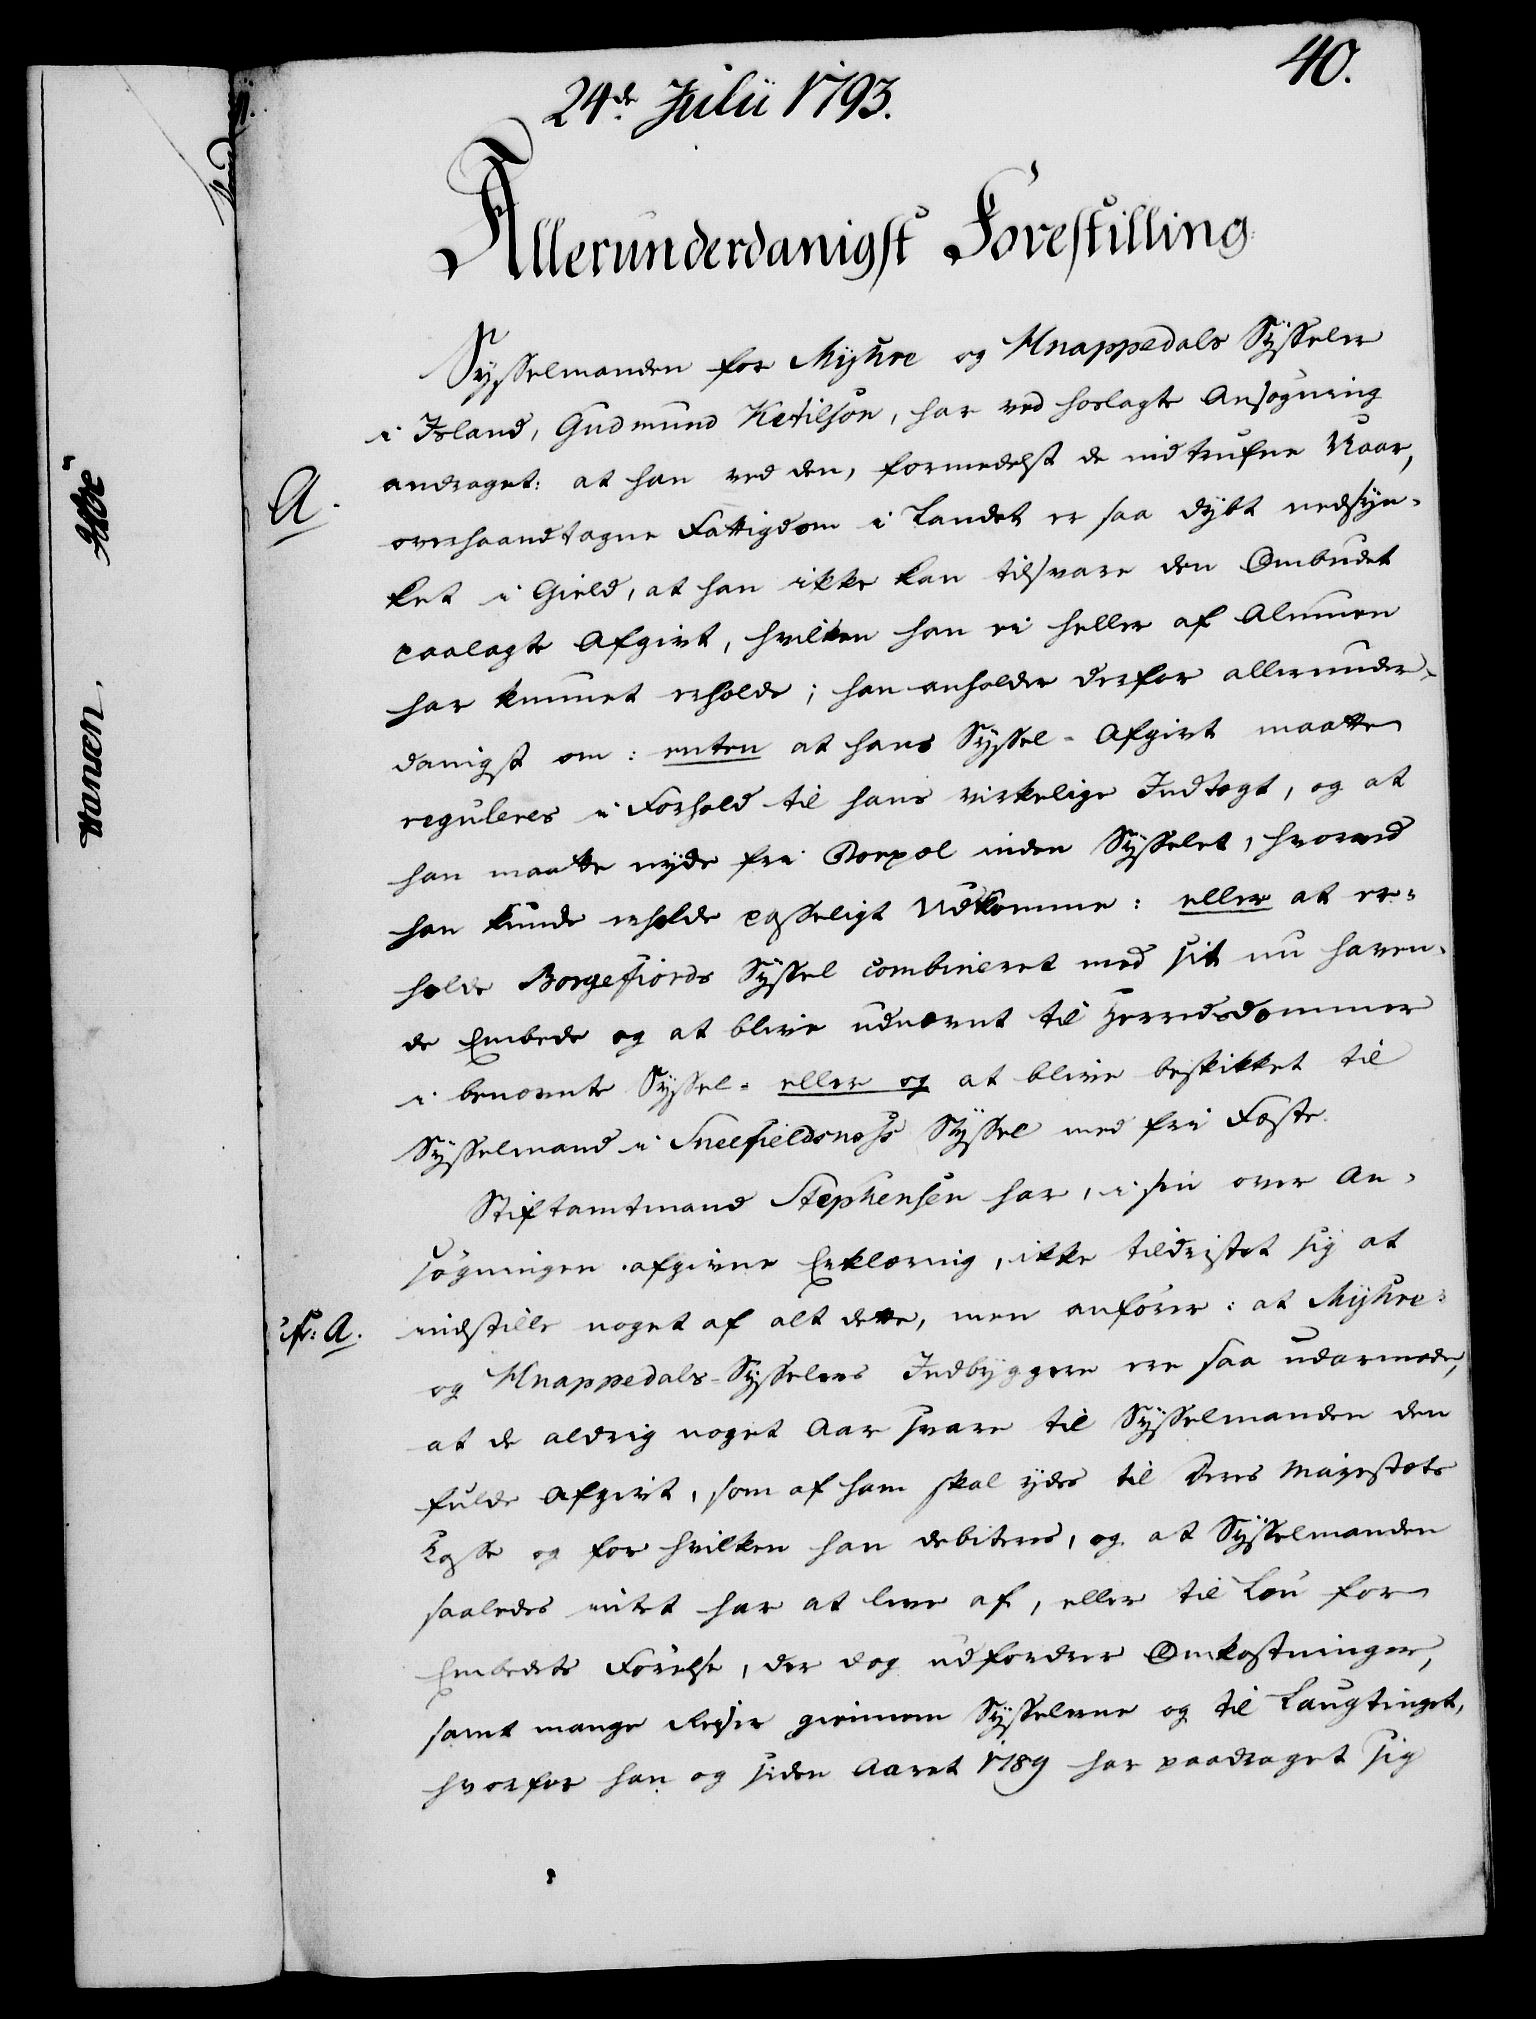 40.
24de Julii 1793.
Allerunderdanigst Forestilling
Sysselmanden for Myhre og Hnappedals Sysseler
i Island, Gudmund Ketilson, har ved hoslagte Ansøgning
A.
andraget: at han ved den, formedelst de indtrufne Uaar,
overhaandtagne Fattigdom i Landet er saa dybt nedsyn-
ket i Gield, at han ikke kan tilsvare den Ombudet
paalagte Afgivt, hvilken han ei heller af Almuen
har kunnet erholde; han anholder derfor allerunder-
danigst om: enten at hans Syssel-Afgivt maatte
reguleres i Forhold til hans virkelige Indtægt, og at
han maatte nyde fri Boepæl inden Sysselet, hvorved
han kunde erholde passeligt Udkomme: eller at er-
holde Borgefiords Syssel combineret med sit nu haven-
de Embede og at blive udnævnt til Herredsdommer
i benævnte Syssel- eller og at blive beskikket til
Sysselmand i Sneefieldsness Syssel med fri Fæste.
Stiftamtmand Stephensen har, i sin over An-
søgningen afgivne Erklæring, ikke tildristet sig at
cfr: A.
indstille noget af alt dette, men anfører: at Myhre-
og Hnappedals-Sysselers Indbyggere ere saa udarmede,
at de aldrig noget Aar svare til Sysselmanden den
fulde Afgivt, som af ham skal ydes til Deres Majestæts
Kasse og for hvilken han debiteres, og at Sysselmanden
saaledes intet har at leve af, eller til Løn for
Embedets Førelse, der dog udfordrer Omkostninger,
samt mange Reiser giennem Sysselerne og til Laugtinget,
hvorfor han og siden Aaret 1789 har paadraget sig
Hansen